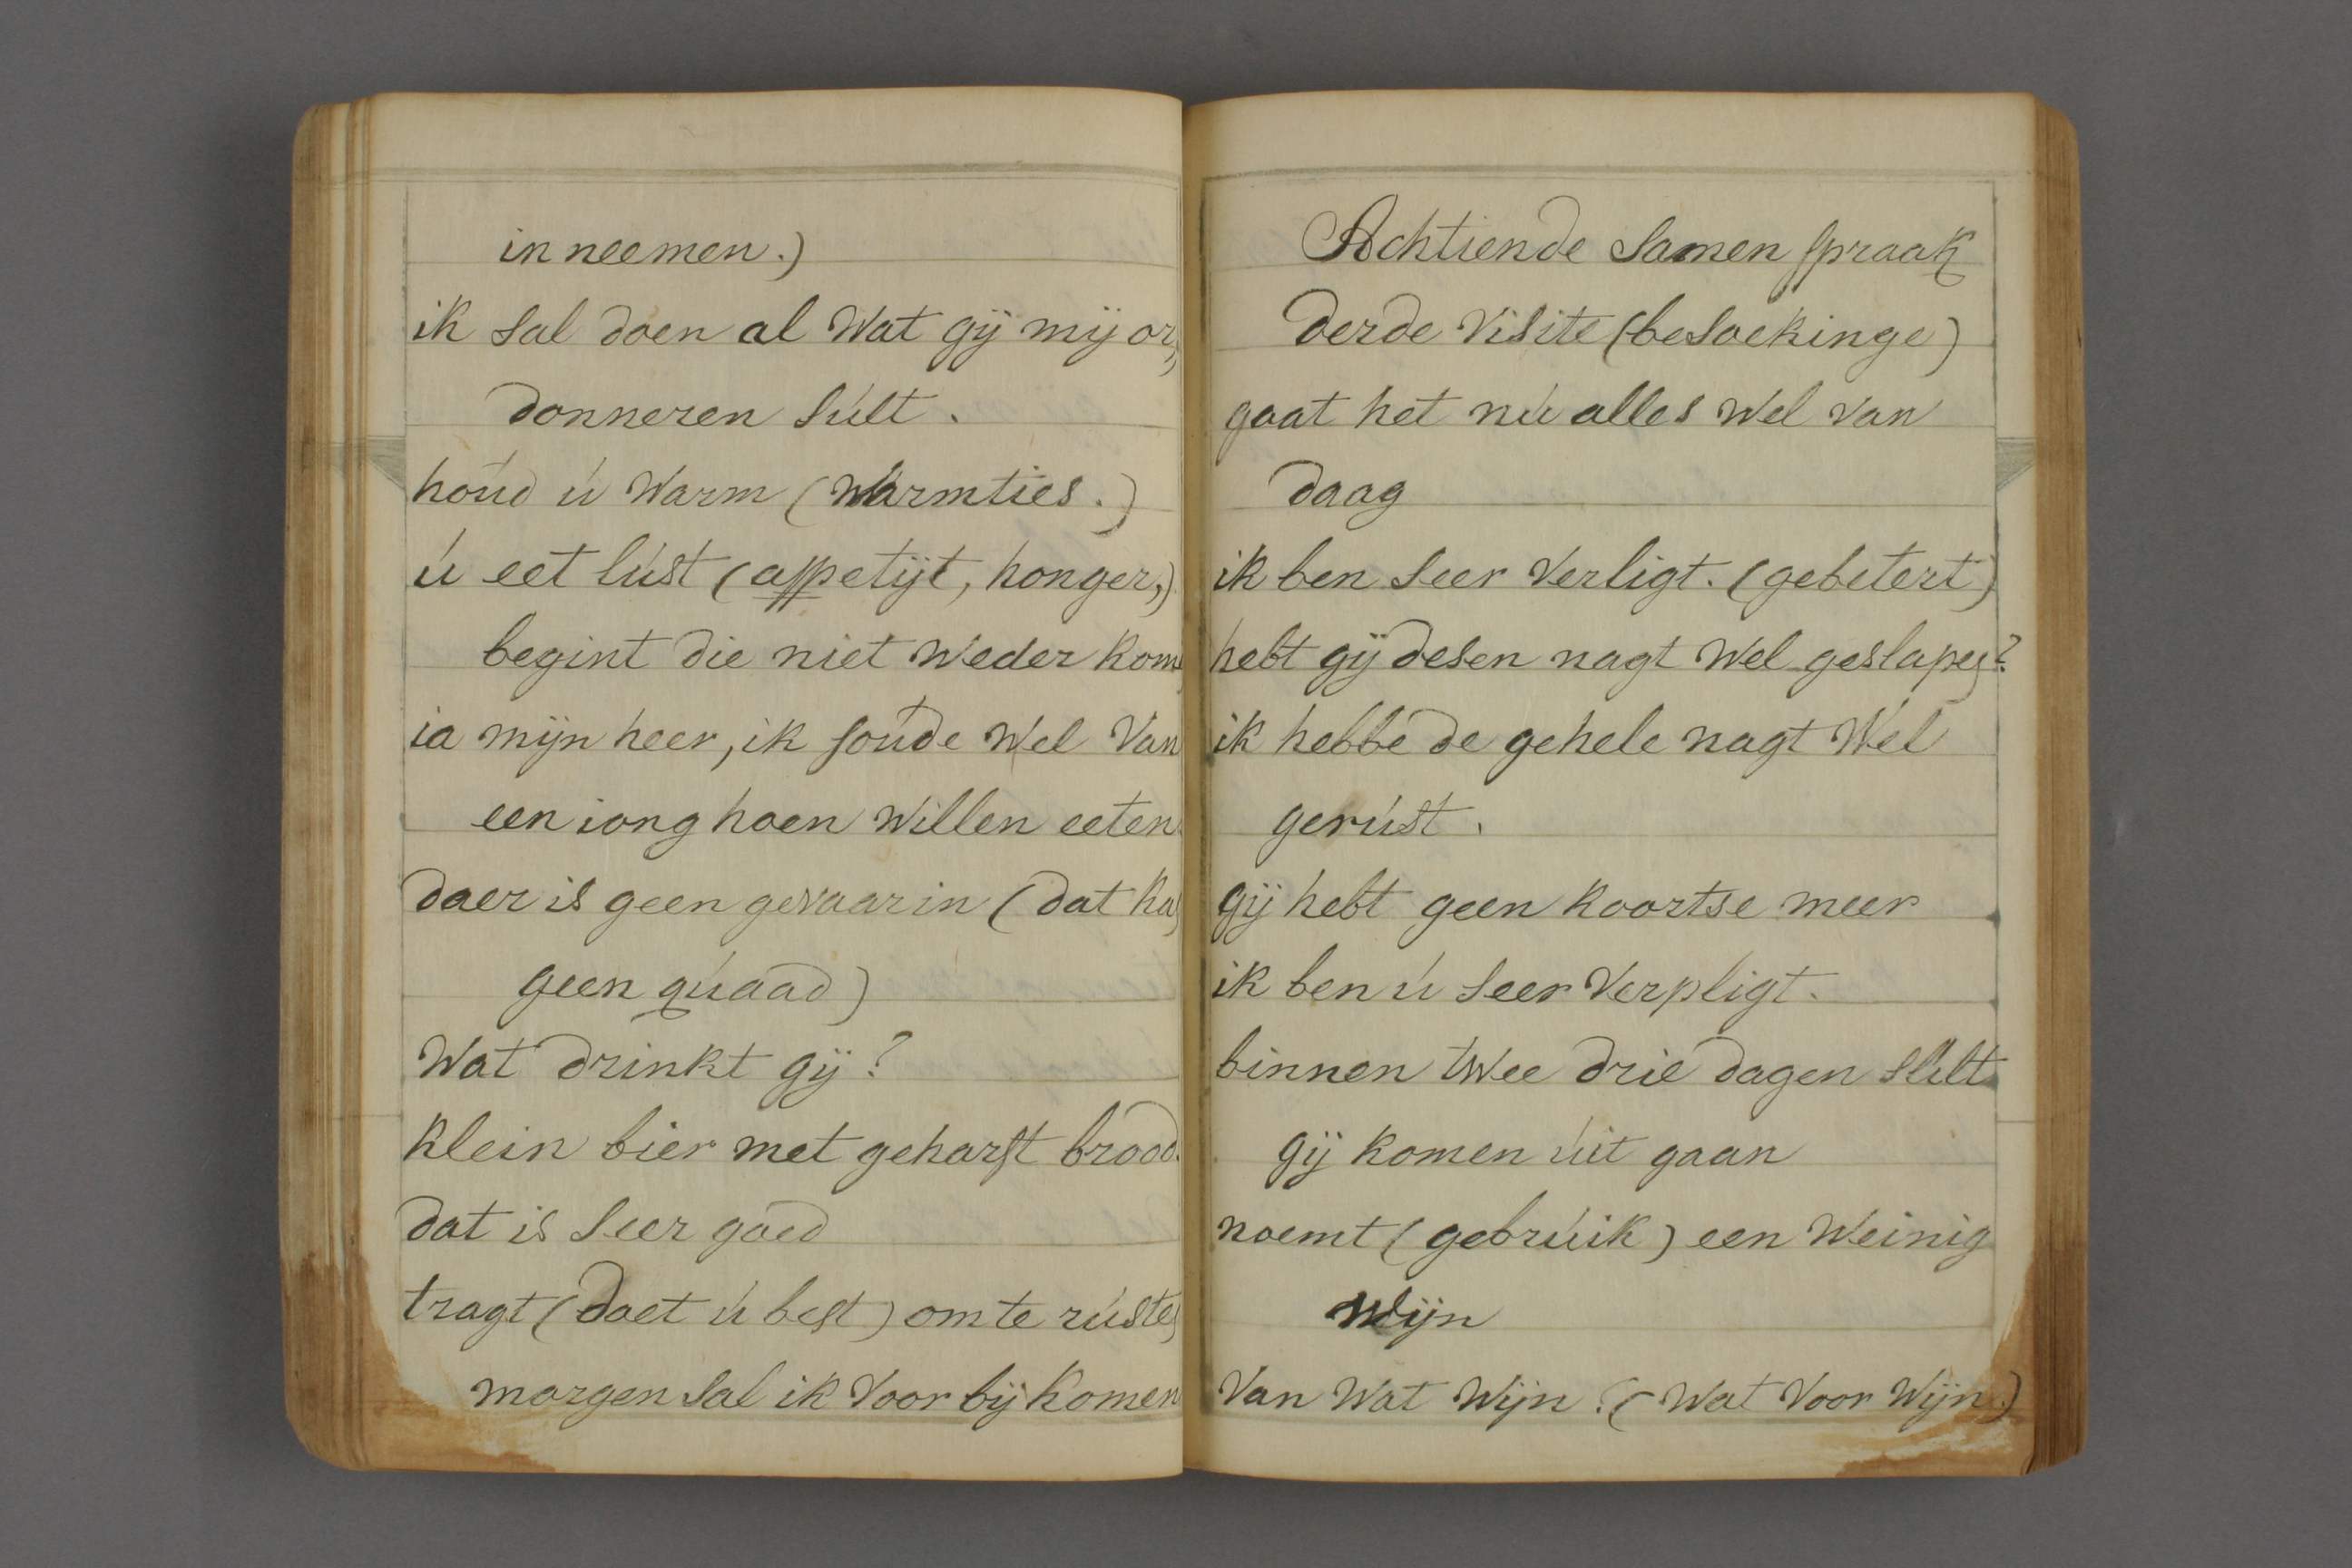 in neemen.)
ik sal doen al Wat gij mij or,,
donneren sult.
houd u Warm (Warmties.)
u eet lust (appetijt, honger,)
begint die niet Weder kom
ia mijn heer, ik soude Wel Van
een iong hoen Willen eeten
daer is geen gevaar in (dat ka
geen quaad)
Wat drinkt gij?
klein bier met geharst brood.
dat is seer goed
tragt (doet u best) om te ruste
morgen sal ik Voor bij komen
Achtiende Samen spraak
derde Visite (besoekinge)
gaat het nu alles Wel van
daag
ik ben seer Verligt. (gebetert)
hebt gij desen nagt Wel geslapen?
ik hebbe de gehele nagt Wel
gerust.
gij hebt geen koortse meer
ik ben u seer Verpligt.
binnen twee drie dagen sult
gij komen uit gaan
noemt (gebruik) een Weinig
Wijn
Van Wat Wijn? (Wat Voor Wijn.)